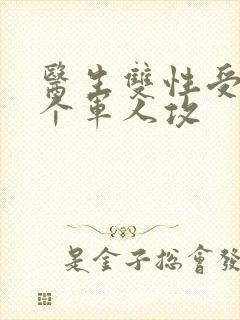 醫生雙性受
个軍人攻
是金子總會發